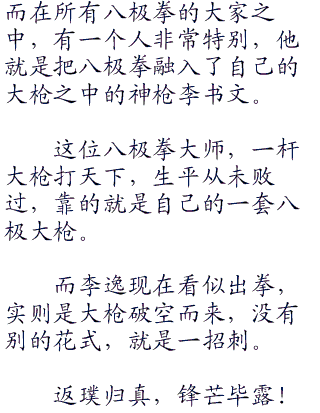 而在所有八极拳的大家之
中，有一个人非常特别，他
就是把八极拳融入了自己的
大枪之中的神枪李书文。
这位八极拳大师，一杆
大枪打天下，生平从未败
过，靠的就是自己的一套八
极大枪。
而李逸现在看似出拳，
实则是大枪破空而来，没有
别的花式，就是一招刺。
返璞归真，锋芒毕露！